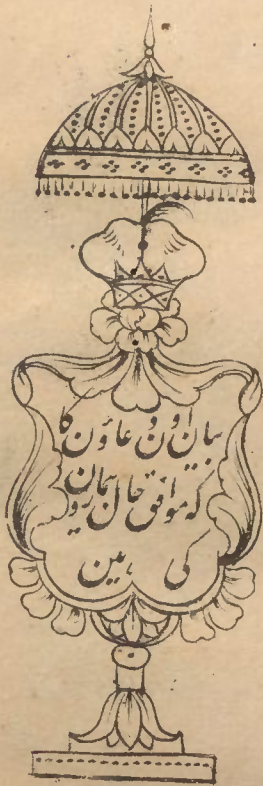 بیان اون دعاؤن کا
کہ موافق حال
کی ہین